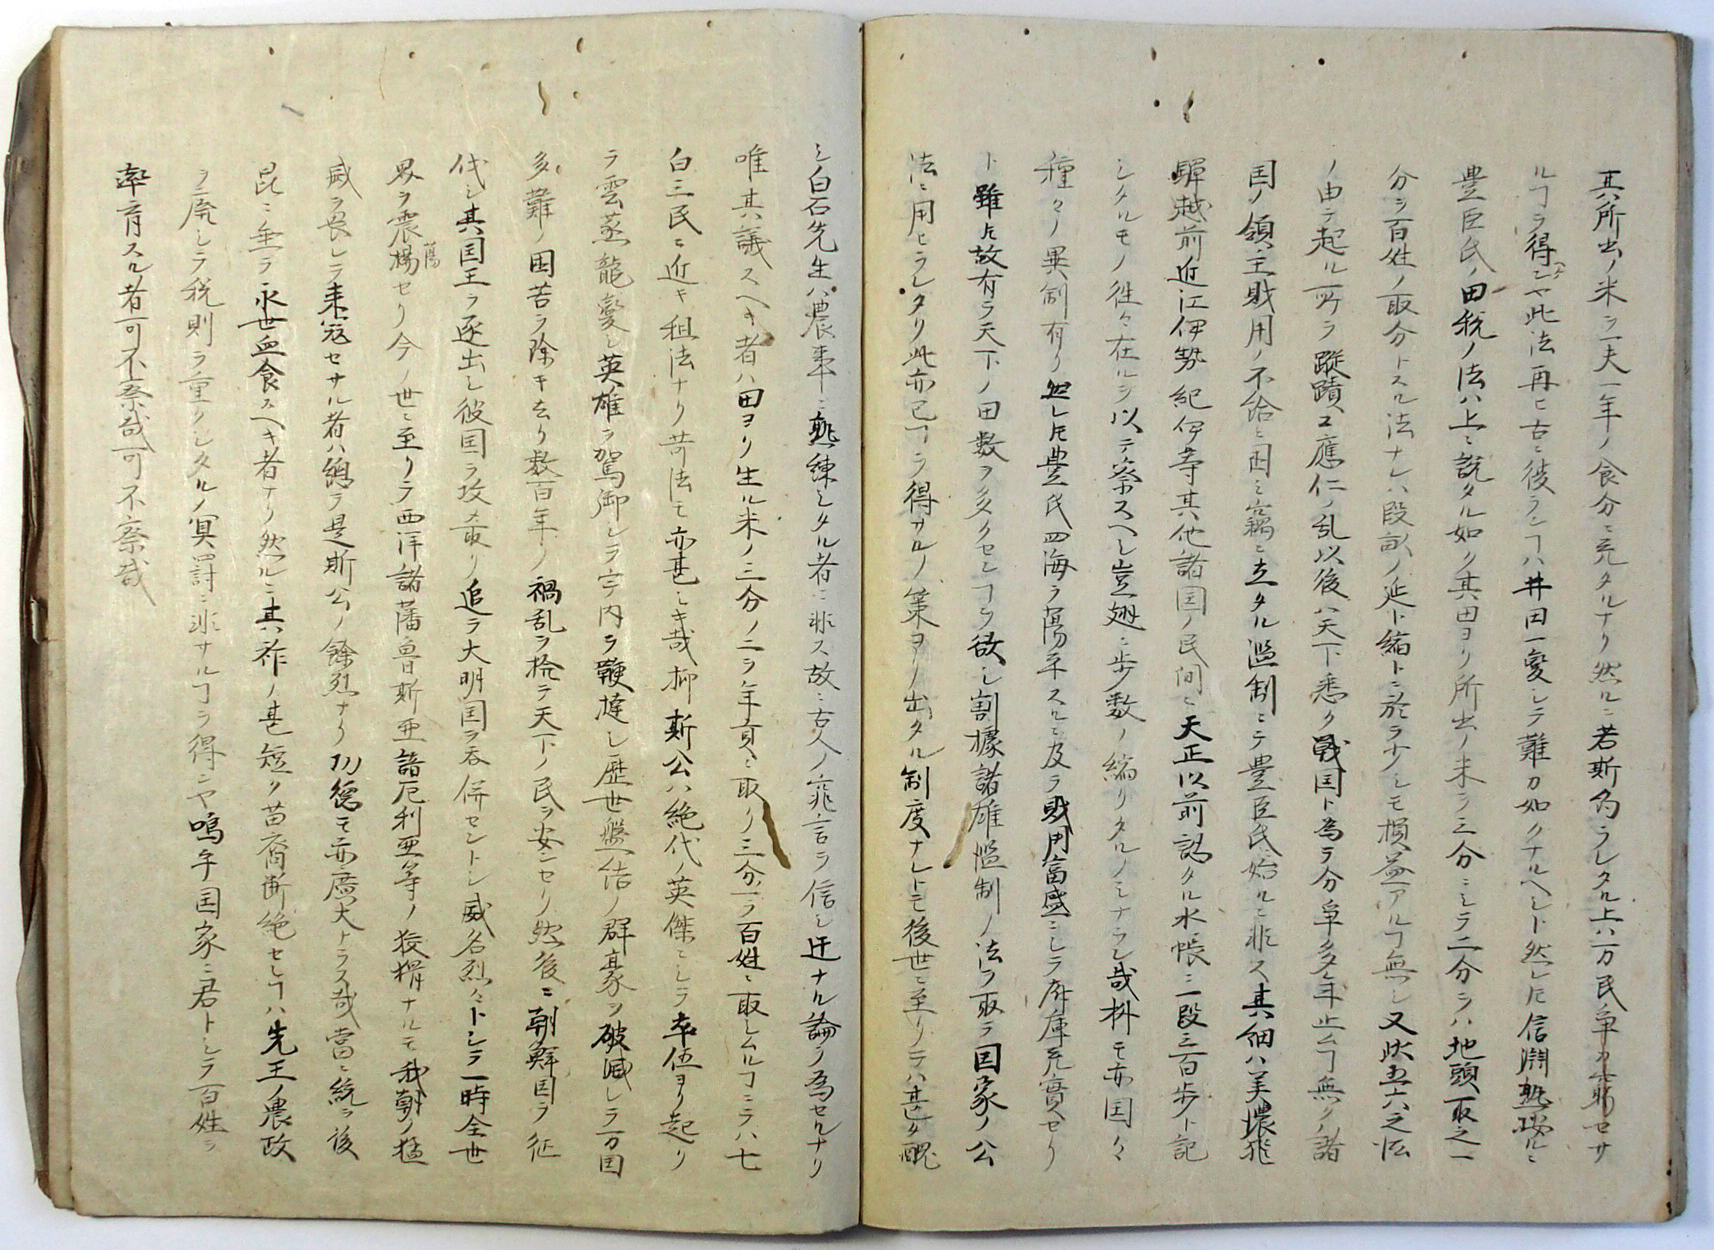 其所出ノ米ヲ一夫一年ノ食分ニ充タルナリ然ルニ若斯匀ラレタル上ハ万民ノ卓力竆セサ
ルヿヲ得ンヤ此法再ヒ古ニ復ランヿハ井田一變シテ難カ如クナルヘシト然レ𪜈信淵熟按ルニ
豊臣氏ノ田税ノ法ハ上ニ説タル如ク其田ヨリ所出ノ米ヲ三分ニシテ二分ヲハ地頭取之一
分ヲ百姓ノ取分トスル法ナレハ段畝ノ延ト縮トニ於テ少シモ損益アルヿ無シ又此五六之法
ノ由テ起ル所ヲ蹤蹟スルニ應仁ノ乱以後ハ天下悉ク戦国ト為テ分卓多年止ムヿ無ク諸
国ノ領主財用ノ不給ニ困ミ竊ニ立タル濫制ニテ豊臣氏始ルニ非ス其細ハ美濃飛
驒越前近江伊勢紀伊等其他諸国ノ民間ニ天正以前認タル水帳ニ一段三百歩ト記
シタルモノ往々在ルヲ以テ察スヘシ豈翅ニ歩数ノ縮リタルノミナラン哉枡モ亦国々
種々ノ異制有リ然レ𪜈豊氏四海ヲ蕩平スルニ及テ財用富盛ニシテ府庫充實セリ
ト雖𪜈故有テ天下ノ田数ヲ多クセンヿヲ欲シ割據諸雄濫制ノ法ヲ取テ国家ノ公
法ニ用ヒラレタリ此亦已ヿヲ得サルノ策ヨリ出タル制度ナレトモ後世ニ至リテハ甚タ醜
シ白石先生ハ農事ニ熟練シタル者ニ非ス故ニ古人ノ言ヲ信シ迂ナル論ヲ為セルナリ
唯其議スヘキ者ハ田ヨリ生ル米ノ三分ノ二ヲ年貢ニ取リ三分一ヲ百姓ニ取シムルヿニテハ七
白三民ニ近キ租法ナリ苛法モ亦甚シキ哉抑斯公ハ絶代ノ英傑ニシテ卒伍ヨリ起リ
テ雲蒸龍變シ英雄ヲ駕御シテ宇内ヲ鞭撻シ歴世盤結ノ群豪ヲ破滅シテ万国
多難ノ困苦ヲ除キ去リ数百年ノ禍乱ヲ拾テ天下ノ民ヲ安ンセリ然後ニ朝鮮国ヲ征
伐シ其国王ヲ逐出シ彼国ヲ攻取リ追テ大明国ヲ呑併セントシ威名烈々トシテ一時全世
界ヲ震揚蕩セリ今ノ世ニ至リテ西洋諸藩魯斯亜諳厄利亜等ノ狡猾ナルモ我朝ノ猛
威ヲ畏レテ来寇セサル者ハ總テ是斯公ノ餘烈ナリ功徳モ亦廣大ナラス哉當ニ統ヲ後
昆ニ垂テ永世血食スヘキ者ナリ然ルニ其祚ノ甚短ク苗裔断絶セシヿハ先王ノ農政
ヲ廃シテ税則ヲ重クシタルノ冥罰ニ非サルヿヲ得ンヤ嗚乎国家ニ君トシテ百姓ヲ
率育スル者可不察哉可不察哉